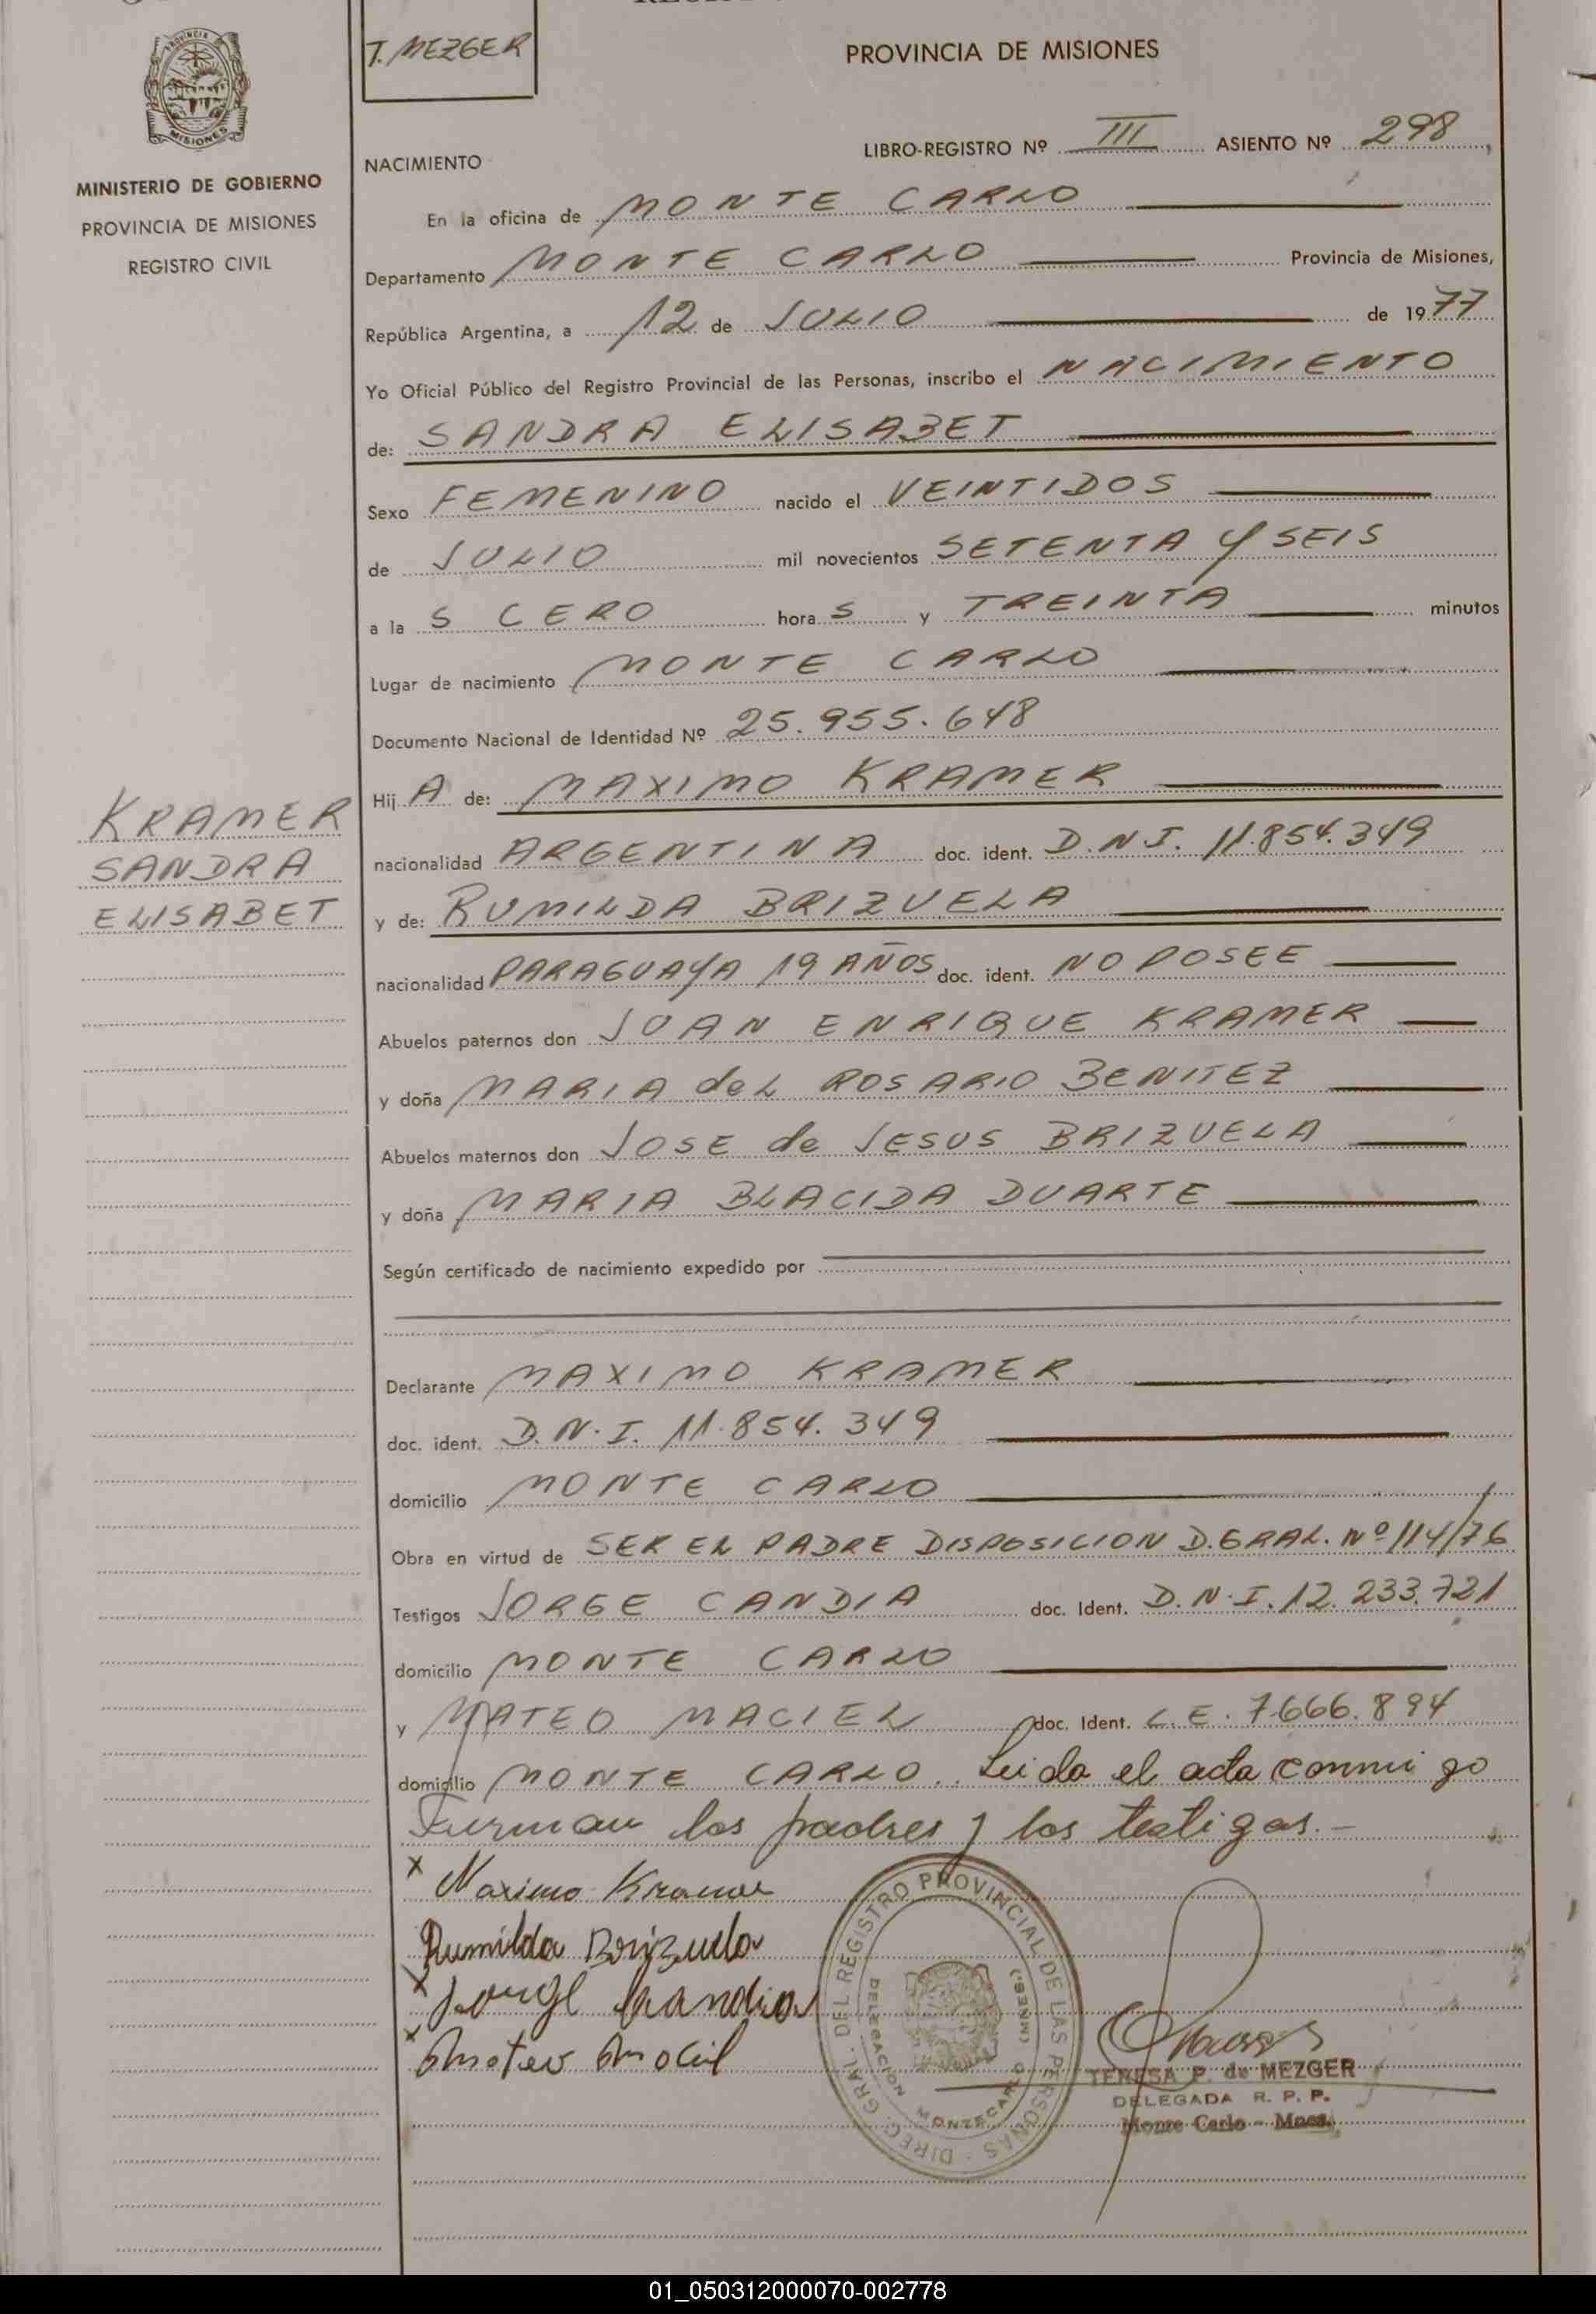 T. MEZGER
PROVINCIA DE MISIONES
MISIONES
MINISTERIO DE GOBIERNO
PROVINCIA DE MISIONES
REGISTRO CIVIL
LIBRO-REGISTRO Nº III ASIENTO Nº 298,
NACIMIENTO
En la oficina de MONTE CARLO
Departamento MONTE CARLO Provincia de Misiones,
República Argentina, a 12 de JULIO de 1977
Yo Oficial Público del Registro Provincial de las Personas, inscribo el NACIMIENTO
de: SANDRA ELISABET
Sexo FEMENINO nacido el VEINTIDOS
de JULIO mil novecientos SETENTA Y SEIS
a la S CERO hora S y TREINTA minutos
Lugar de nacimiento MONTE CARLO
Documento Nacional de Identidad Nº 25.955.648
Hij A de: MAXIMO KRAMER
KRAMER
SANDRA
ELISABET
nacionalidad ARGENTINA doc. ident. D.N.I. 11.854.349
y de: RUMILDA BRIZUELA
nacionalidad PARAGUAYA 19 AÑOS doc. ident. NO POSEE
Abuelos paternos don JUAN ENRIQUE KRAMER
y doña MARIA del ROSARIO BENITEZ
Abuelos maternos don JOSE de JESUS BRIZUELA
y doña MARIA BLACIDA DUARTE
Según certificado de nacimiento expedido por
Declarante MAXIMO KRAMER
doc. ident. D.N.I. 11.854.349
domicilio MONTE CARLO
Obra en virtud de SER EL PADRE DISPOSICION D.GRAL. Nº 114/76
Testigos JORGE CANDIA doc. Ident. D.N.I. 12.233.721
domicilio MONTE CARLO
y MATEO MACIEL doc. Ident. L.E. 7.666.894
domicilio MONTE CARLO. Leida el acta conmigo
Firman los padres y los testigos.-
x Maximo Kramer
Rumilda Brizuela
x Jorge Candia
x Mateo Maciel
DIREC. GRAL. DEL REGISTRO PROVINCIAL DE LAS PERSONAS
DELEGACION MONTECARLO (MNES.)
TERESA P. de MEZGER
DELEGADA R. P. P.
Monte Carlo - Mnes.
01_050312000070-002778